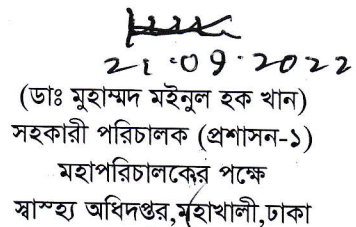 21.09.2022
(ডাঃ মুহাম্মদ মইনুল হক খান)
সহকারী পরিচালক (প্রশাসন-১)
মহাপরিচালকের পক্ষে
স্বাস্হ্য অধিদপ্তর,মহাখালী,ঢাকা